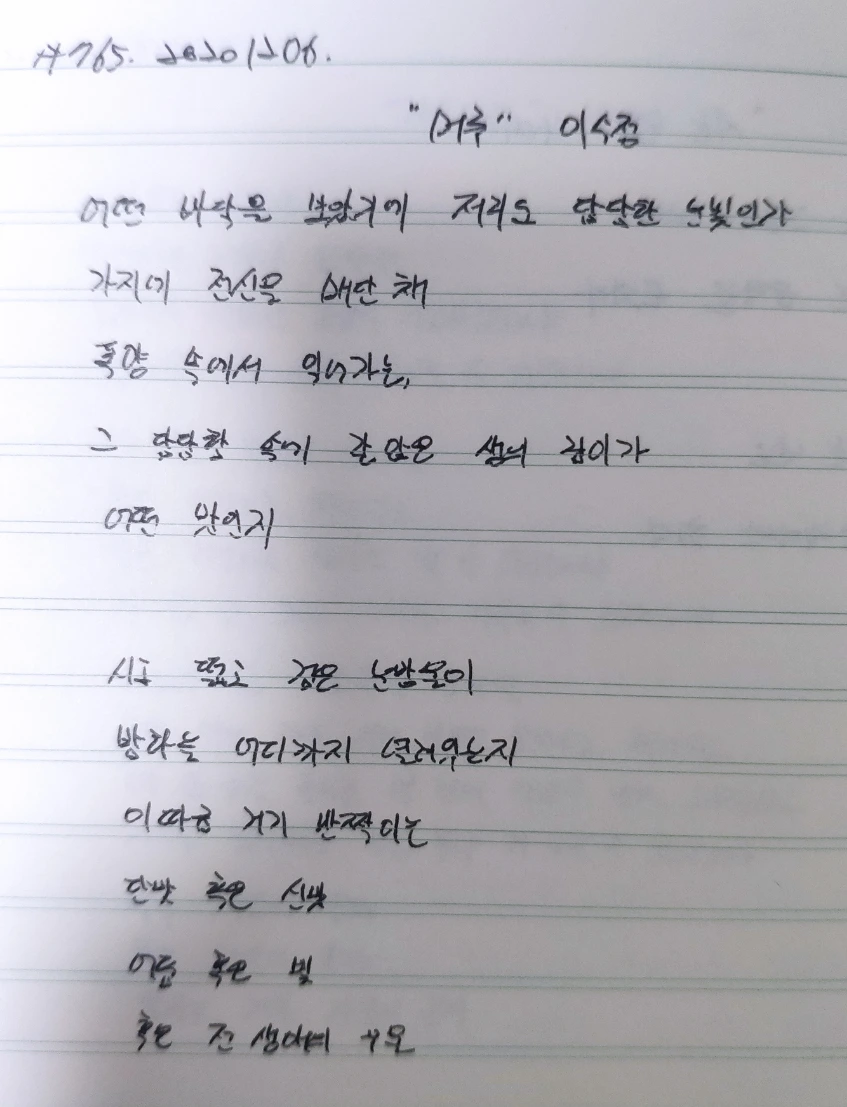 #765. 20201206.
"머루" 이수정
어떤 바닥을 보았기에 저리도 담담한 눈빛인가
가지에 전신을 매단 채
폭양 속에서 익어가는,
그 담담함 속에 갈앉은 생의 깊이가
어떤 맛인지
시고 떫고 검은 눈망울이
방하늘 어디까지 열려있는지
이따금 거기 반짝이는
단맛 혹은 신맛
어둠 혹은 빛
혹은 전 생애의 무